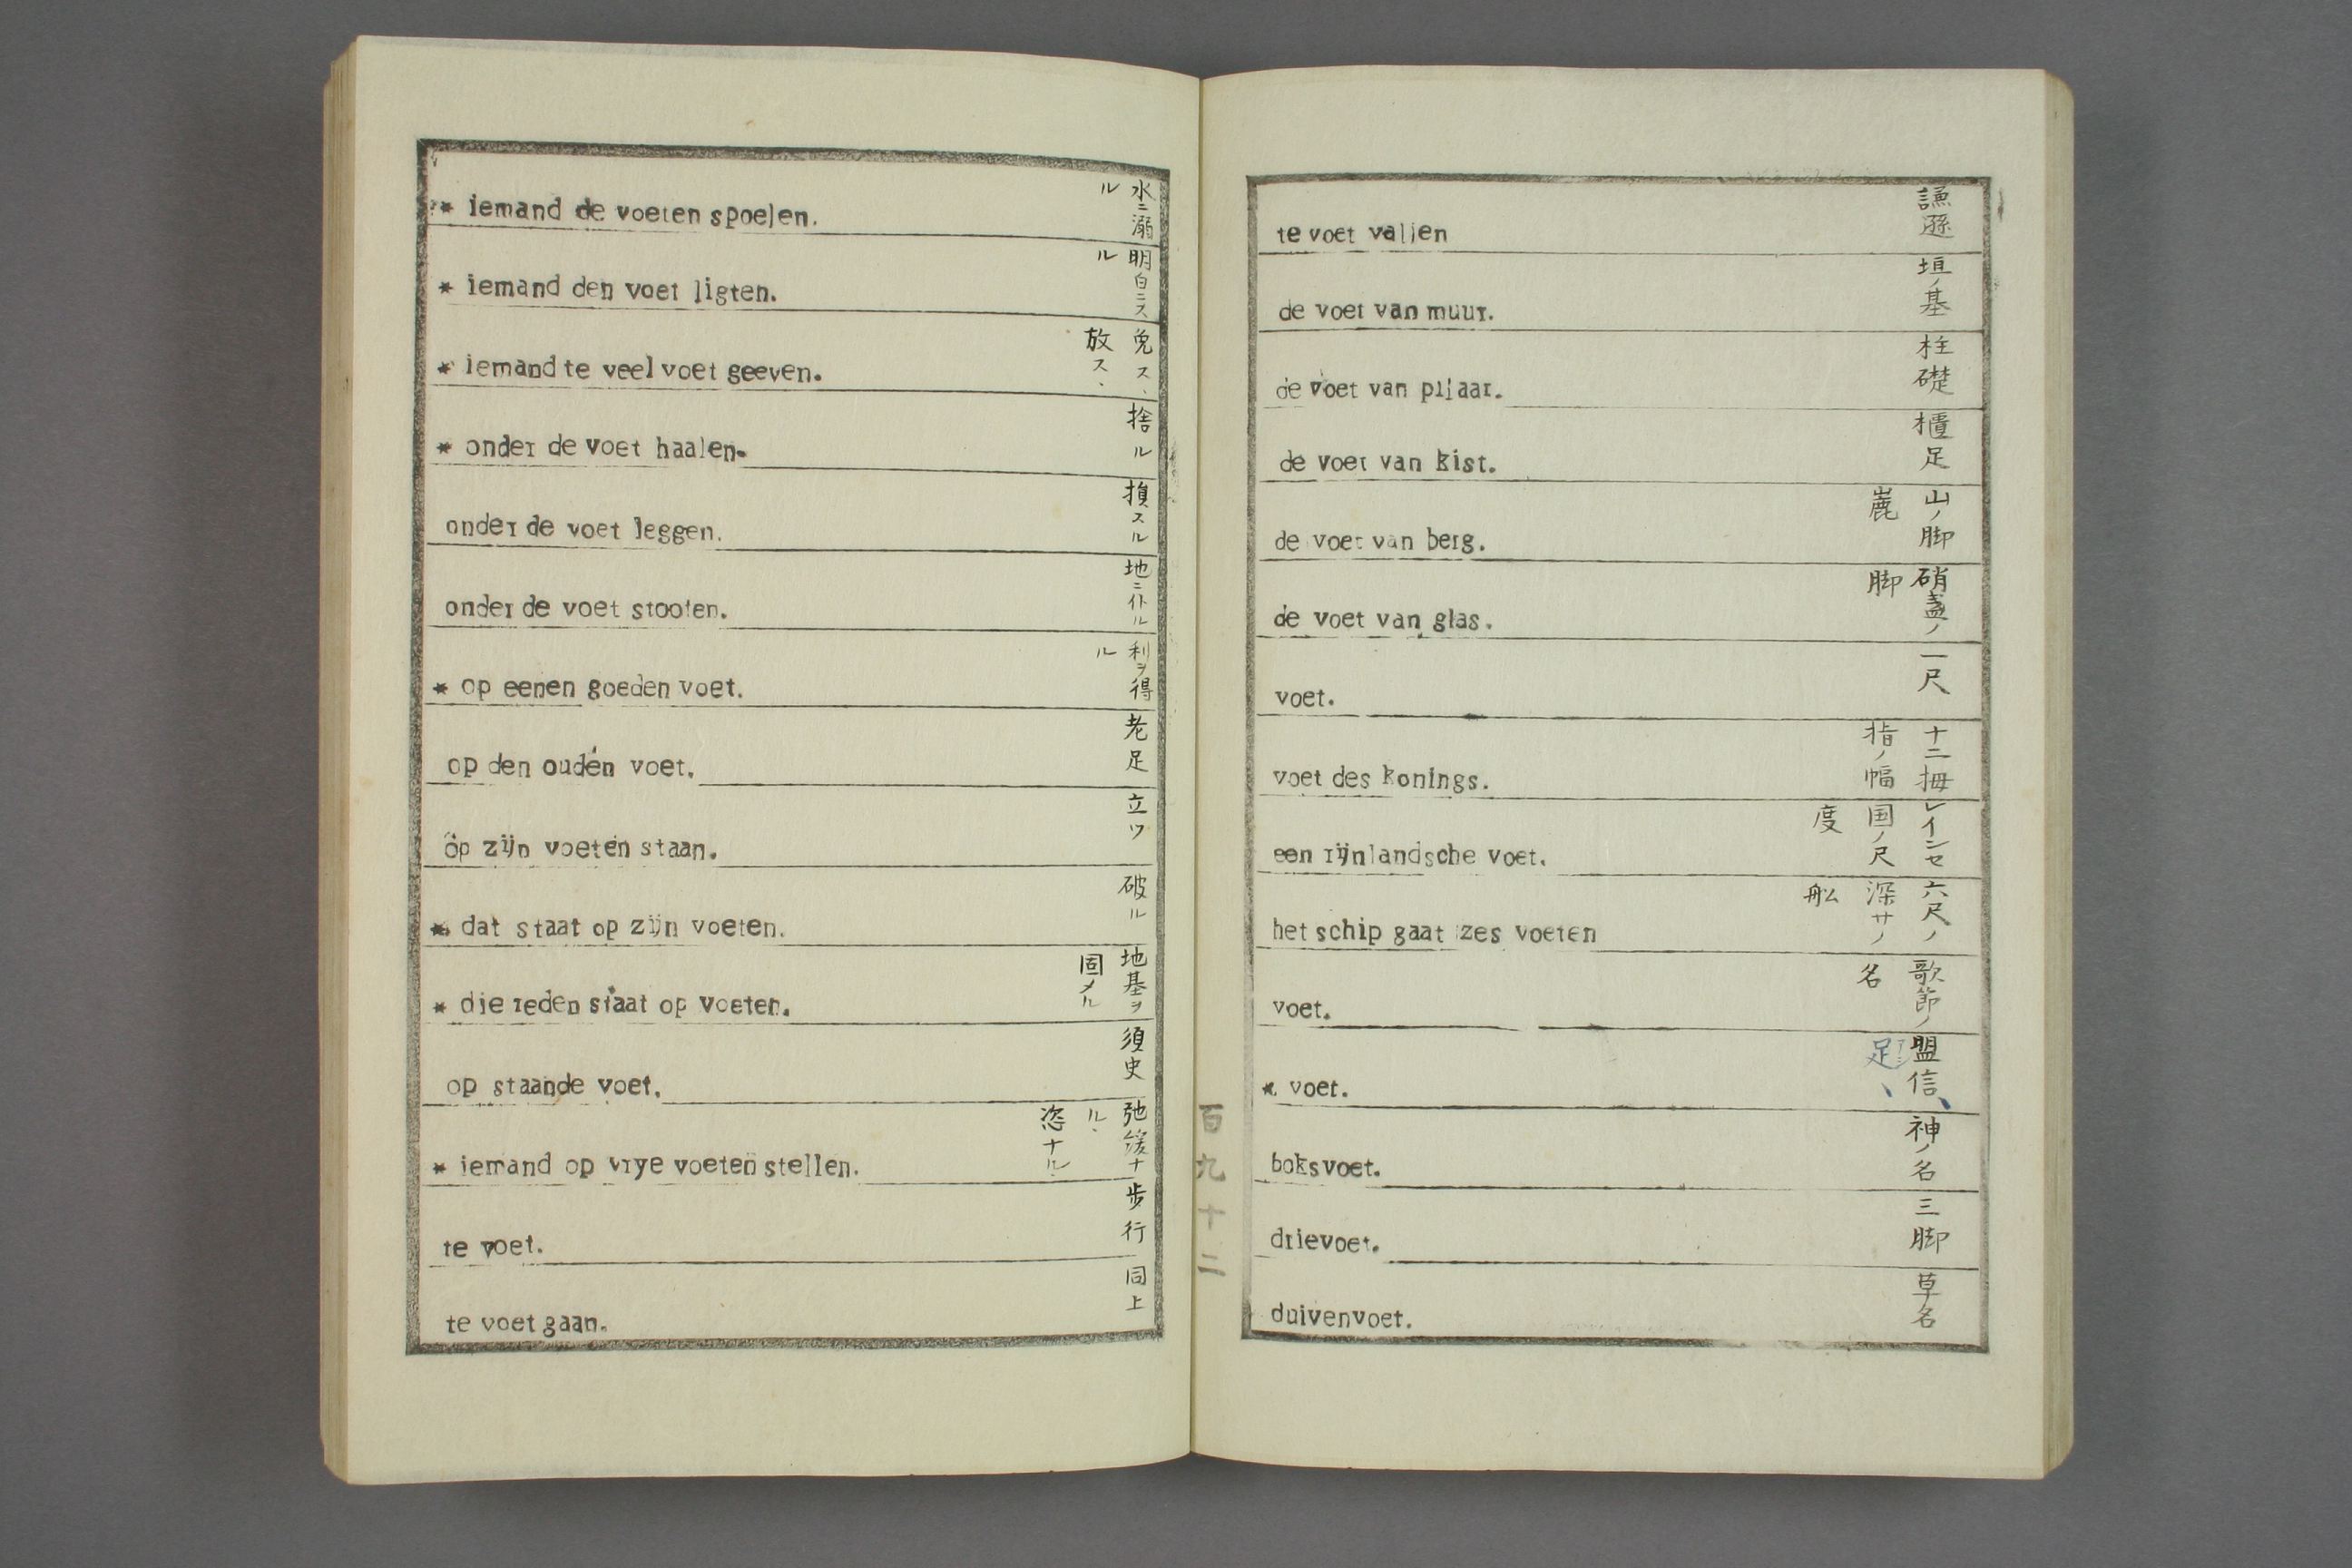 * iemand de voeten spoelen.
水ニ溺
ル
* iemand den voet ligten.
明白ニス
ル
* iemand te veel voet geeven.
免ス、
放ス、
* onder de voet haalen.
捨ル
onder de voet leggen.
損スル
onder de voet stooten.
地ニ仆ル
* op eenen goeden voet.
利ヲ得
ル
op den ouden voet.
老足
op zijn voeten staan.
立ツ
* dat staat op zijn voeten.
破ル
* die reden staat op voeten.
地基ヲ
固メル
op staande voet.
須史
* iemand op vrye voeten stellen.
弛緩ナ
ル、
恣ナル、
te voet.
歩行
te voet gaan.
同上
te voet vallen
謙遜
de voet van muur.
垣ノ基
de voet van pijaar.
柱礎
de voet van kist.
櫃足
de voet van berg.
山ノ脚
麓
de voet van glas.
硝盞ノ
脚
voet.
一尺
voet des konings.
十二拇
指ノ幅
een rijnlandsche voet.
レインセ
国ノ尺
度
het schip gaat zes voeten
六尺ノ
深サノ
舩
voet.
歌節ノ
名
* voet.
盟信、
足、
boksvoet.
神ノ名
drievoet.
三脚
duivenvoet.
草名
百九十二